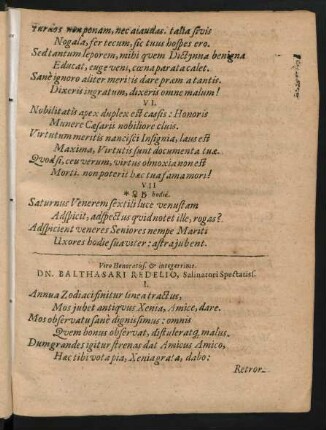 Turdos non ponam, nec aiaudas: talia sivis
Nogala, fer tecum, sic tuus hospes ero.
Sed tantum leporem, mihi quem Dictynna benigna
Educat, euge veni, cœna parata calet.
Sanè ignoro aliter meritis dare præmia tantis.
Dixeris ingratum, dixeris omne malum!
VI.
Nobilitatis apex duplex est cæsis: Honoris
Munere Cæsarii nobiliore cluis.
Virtutum meritis nancisci Insignia, laus est
Maxima, Virtutis sunt documenta tuæ.
Quod si, ceu verum, virtus obnoxia non est
Morti. non poterit hæc tua fama mori!
VII
* ♀ ♄ hodiè.
Saturnus Venerem sextili luce venustam
Adspicit, adspectus quid notet ille, rogas?
Adspicient veneres Seniores nempe Mariti
Uxores hodie suaviter: astra jubent.
Viro Honoratiss. & integerrimo.
DN. BALTHASARI REDELIO, Salinatori Spectatiss.
I.
Annua Zodiaci finitur linea tractus,
Mos jubet antiquus Xenia, Amice, dare.
Mos observatu sanè dignissimus: omnis
Quem bonus observat, distulerat q, malus.
Dum grandes igitur strenas dat Amicus Amico,
Hac tibi vota pia, Xenia grata, dabo:
Retror-